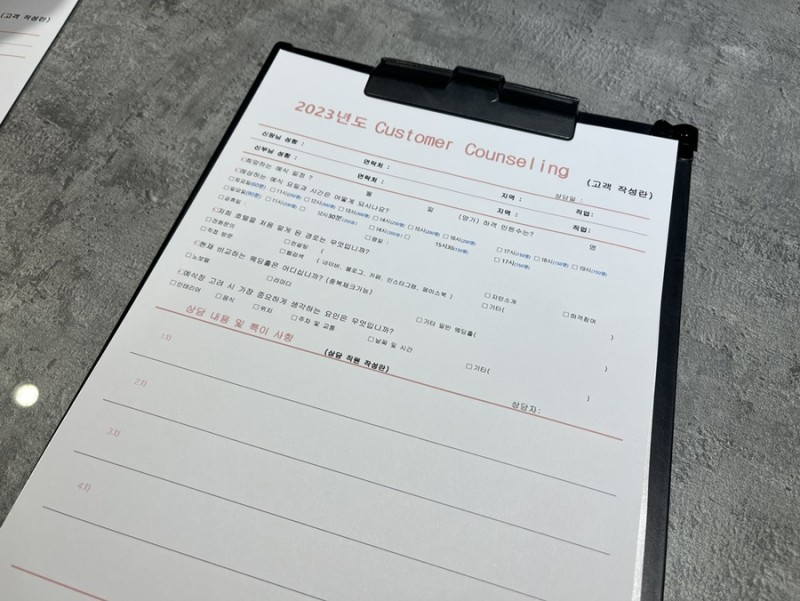 (고객 작성란)
2023년도 Customer Counseling
(고객 작성란)
상담일 :
신랑님 성함 : 연락처 : 지역 : 직업:
신부님 성함 : 연락처 : 지역 : 직업:
희망하는 예식 일정 ? 월 일 (양가) 하객 인원수는? 명
예상하는 예식 요일과 시간은 어떻게 되시나요?
토요일(60분) □ 11시 □ 12시 □ 13시 □ 14시 □ 15시 □ 16시 □ 17시 □ 18시 □ 19시
일요일(90분) □ 11시 □ 12시30분 □ 14시 □ 15시30 □ 17시
공휴일 : □ 평일 :
저희 호텔을 처음 알게 된 경로는 무엇입니까?
□ 전화문의 □ 컨설팅( ) □ 지인소개 □ 하객참여
□ 직접 방문 □ 웹검색 ( 네이버, 블로그, 카페, 인스타그램, 페이스북 ) □ 기타( )
현재 비교하는 웨딩홀은 어디십니까? (중복체크가능)
□ 노보텔 □ 라마다 □ 기타 일반 웨딩홀( )
예식장 고려 시 가장 중요하게 생각하는 요인은 무엇입니까?
□ 인테리어 □ 음식 □ 위치 □ 주차 및 교통 □ 날짜 및 시간 □ 기타( )
상담 내용 및 특이 사항 (상담 직원 작성란) 상담자:
1차
2차
3차
4차